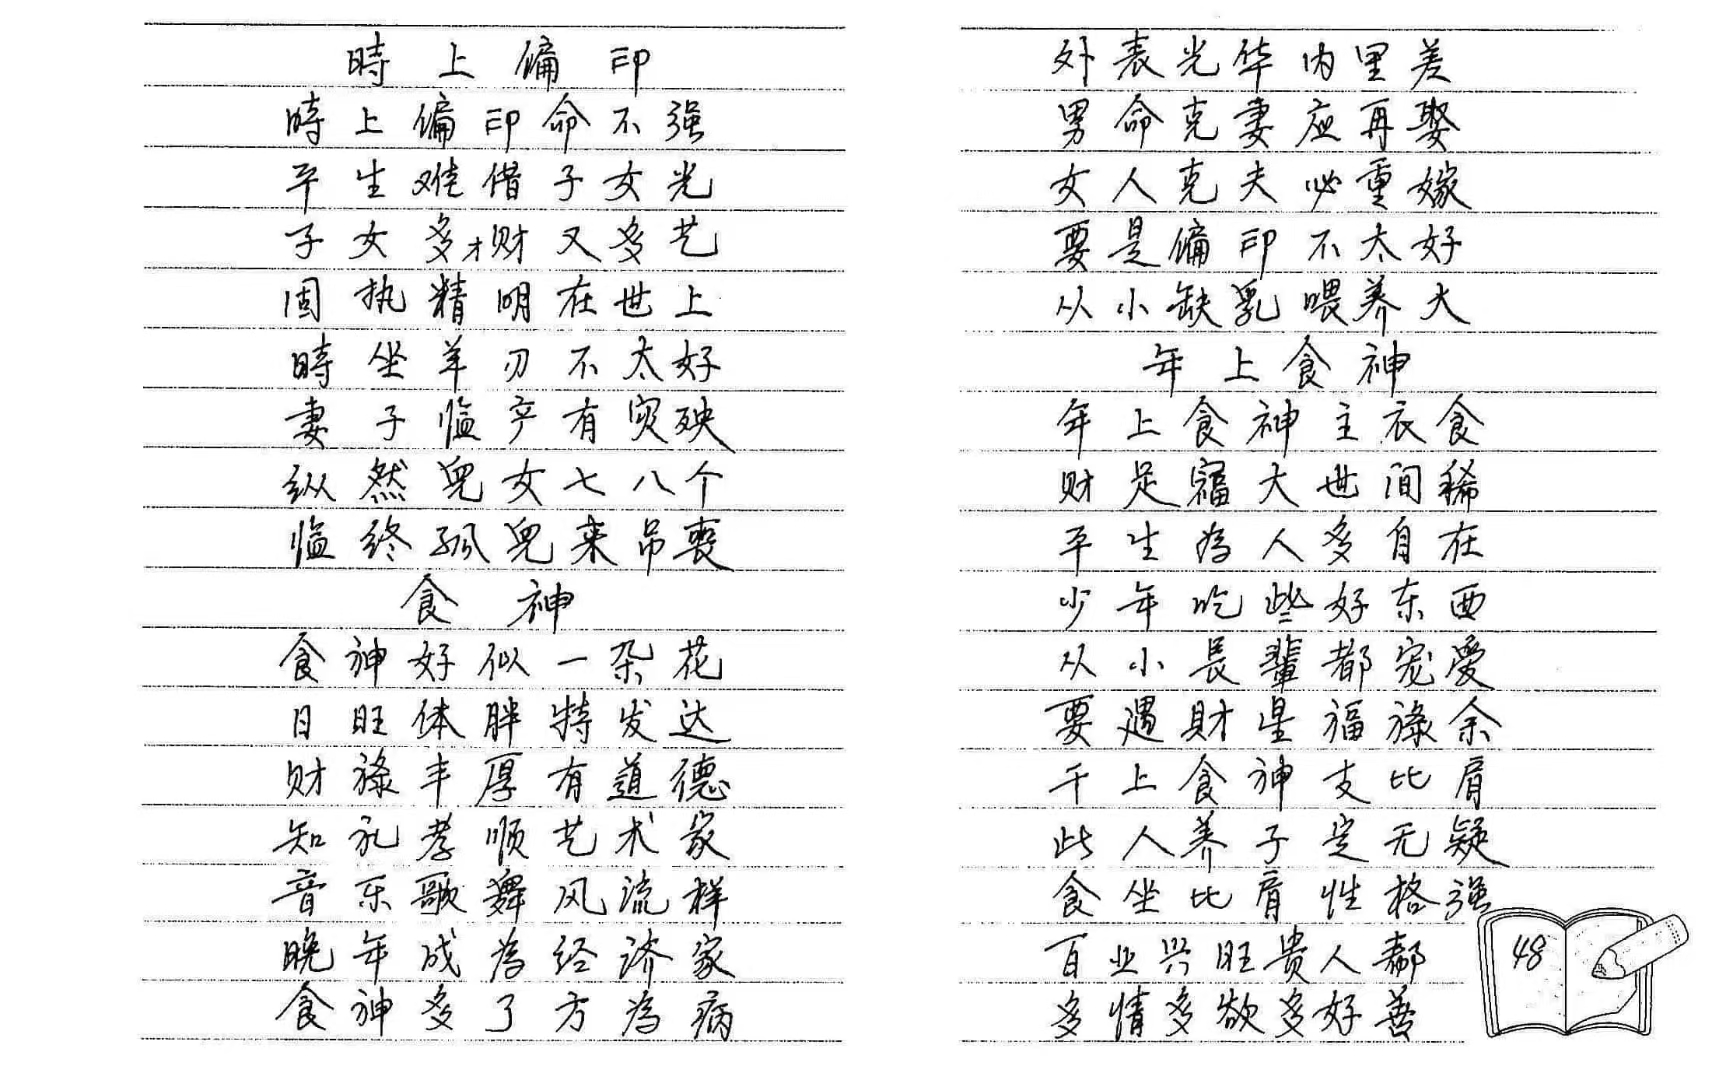 時上偏印
時上偏印命不强
平生难借子女光
子女多才财又多艺
固执精明在世上
時坐羊刃不太好
妻子临产有灾殃
纵然兒女七八个
临终孤兒来吊丧
食神
食神好似一朵花
日旺体胖特发达
财祿丰厚有道德
知礼孝顺艺术家
音乐歌舞风流样
晚年成為经济家
食神多了方為病
外表光华内里差
男命克妻应再娶
女人克夫必重嫁
要是偏印不太好
从小缺乳喂养大
年上食神
年上食神主衣食
财足福大世间稀
平生為人多自在
少年吃些好东西
从小長輩都宠爱
要遇財星福祿余
干上食神支比肩
此人养子定无疑
食坐比肩性格强
百业兴旺贵人帮
多情多欲多好善
48